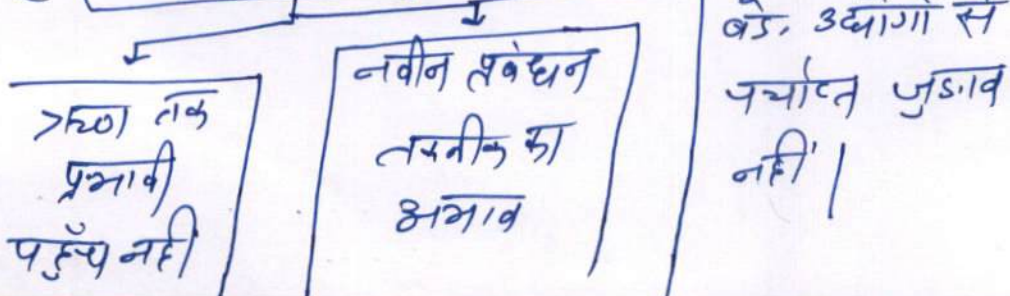 ऋण तक
प्रभावी
पहुँच नही
नवीन प्रबंधन
तकनीक का
अभाव
बडे. उद्योगो से
पर्याप्त जुडा.व
नहीं।